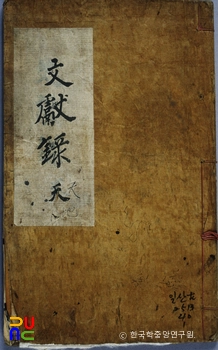 文獻錄
天
PUNC
© 한국학중앙연구원